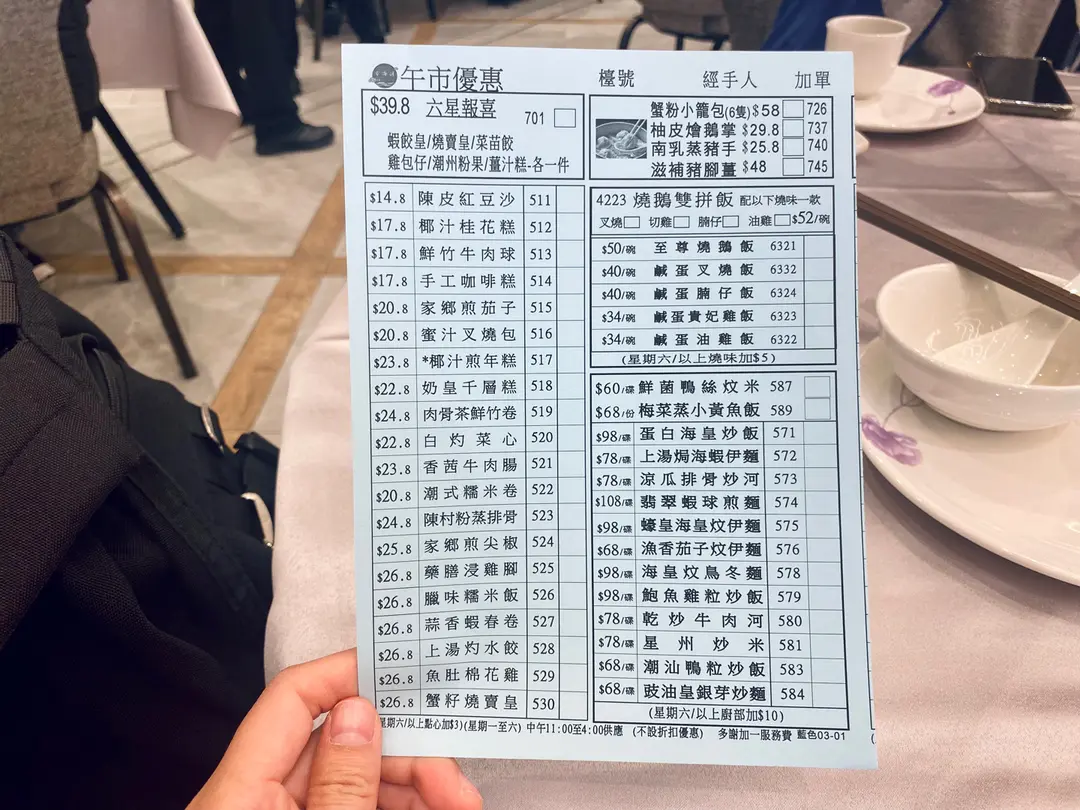 午市優惠 檯號 經手人 加單
$39.8 六星報喜 701
蝦餃皇/燒賣皇/菜苗餃
雞包仔/潮州粉果/薑汁糕-各一件
$14.8 陳皮紅豆沙 511
$17.8 椰汁桂花糕 512
$17.8 鮮竹牛肉球 513
$17.8 手工咖啡糕 514
$20.8 家鄉煎茄子 515
$20.8 蜜汁叉燒包 516
$23.8 *椰汁煎年糕 517
$22.8 奶皇千層糕 518
$24.8 肉骨茶鮮竹卷 519
$22.8 白灼菜心 520
$23.8 香茜牛肉腸 521
$20.8 潮式糯米卷 522
$24.8 陳村粉蒸排骨 523
$25.8 家鄉煎尖椒 524
$26.8 藥膳浸雞腳 525
$26.8 臘味糯米飯 526
$26.8 蒜香蝦春卷 527
$26.8 上湯灼水餃 528
$26.8 魚肚棉花雞 529
$26.8 蟹籽燒賣皇 530
蟹粉小籠包(6隻) $58 726
柚皮燴鵝掌 $29.8 737
南乳蒸豬手 $25.8 740
滋補豬腳薑 $48 745
4223 燒鵝雙拼飯 配以下燒味一款
叉燒 切雞 腩仔 油雞 $52/碗
$50/碗 至尊燒鵝飯 6321
$40/碗 鹹蛋叉燒飯 6332
$40/碗 鹹蛋腩仔飯 6324
$34/碗 鹹蛋貴妃雞飯 6323
$34/碗 鹹蛋油雞飯 6322
(星期六/以上燒味加$5)
$60/碟 鮮菌鴨絲炆米 587
$68/份 梅菜蒸小黃魚飯 589
$98/碟 蛋白海皇炒飯 571
$78/碟 上湯焗海蝦伊麵 572
$78/碟 涼瓜排骨炒河 573
$108/碟 翡翠蝦球煎麵 574
$98/碟 蠔皇海皇炆伊麵 575
$68/碟 漁香茄子炆伊麵 576
$98/碟 海皇炆烏冬麵 578
$98/碟 鮑魚雞粒炒飯 579
$78/碟 乾炒牛肉河 580
$78/碟 星州炒米 581
$68/碟 潮汕鴨粒炒飯 583
$68/碟 豉油皇銀芽炒麵 584
(星期六/以上廚部加$10)
星期六/以上點心加$3)(星期一至六) 中午11:00至4:00供應 (不設折扣優惠) 多謝加一服務費 藍色03-01